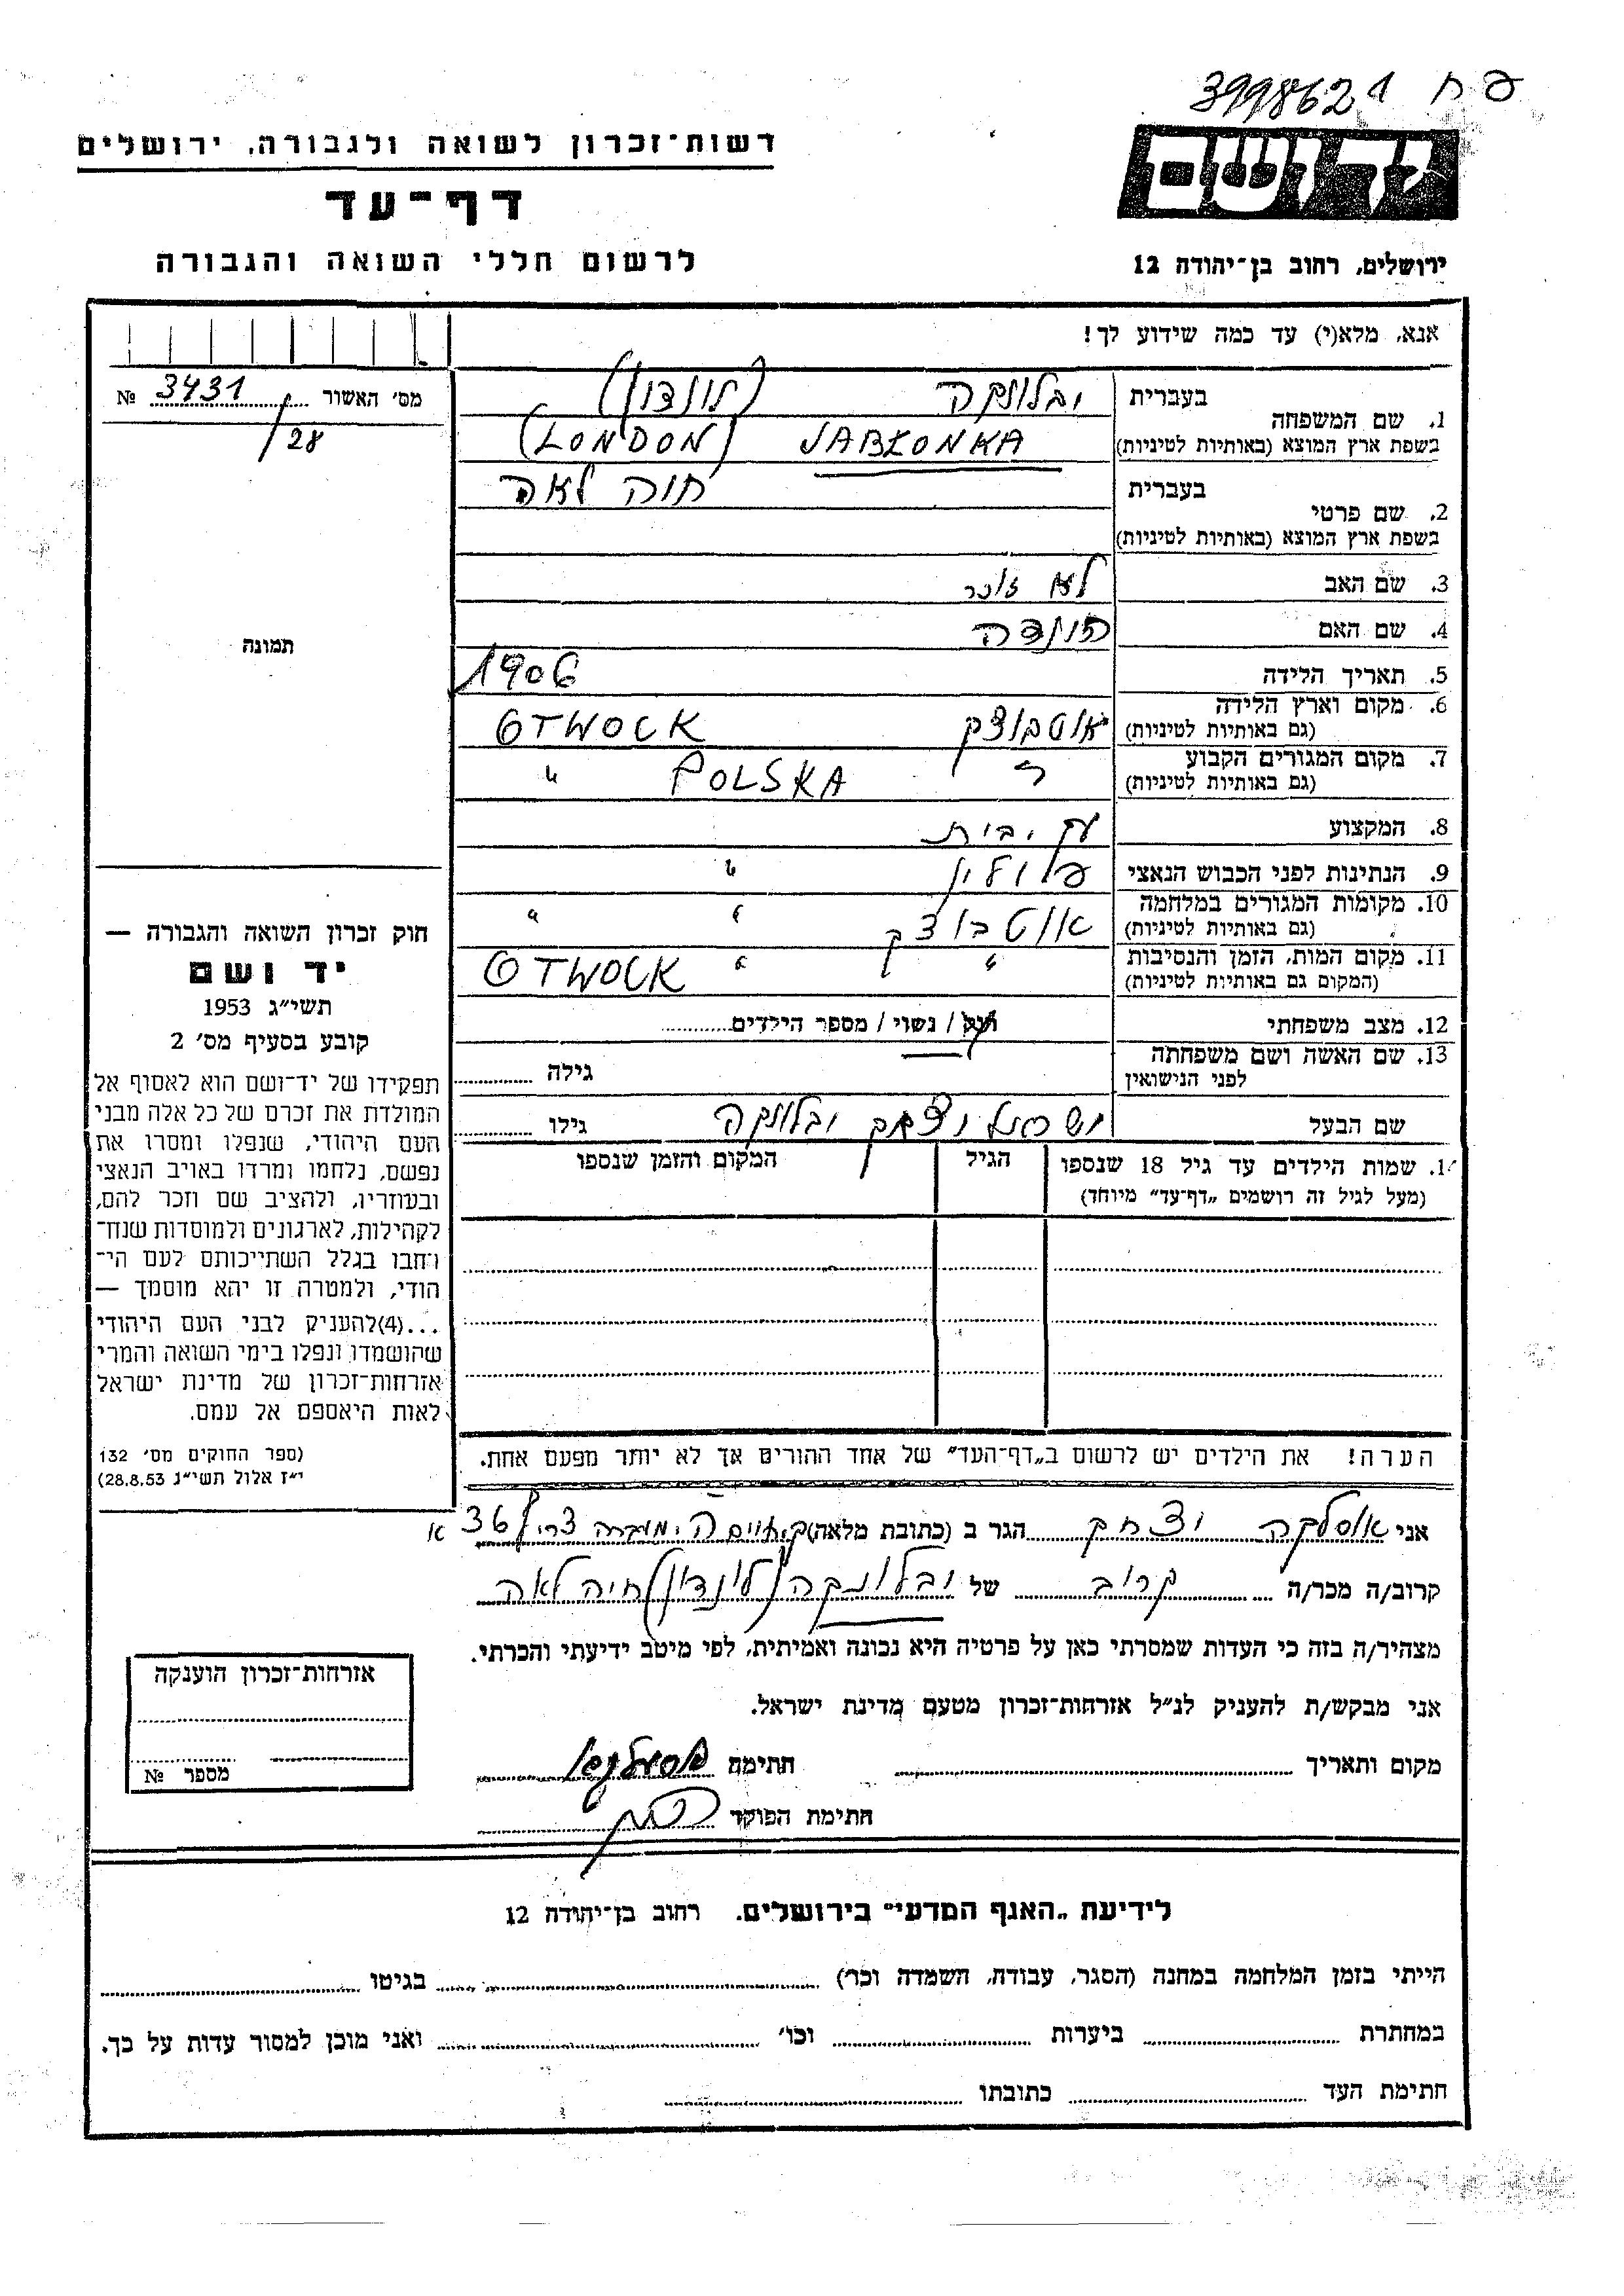 פ ח 3998621
יד ושם
ירושלים, רחוב בן־יהודה 12
רשות־זכרון לשואה ולגבורה, ירושלים
דף־עד
לרשום חללי השואה והגבורה
אנא, מלא(י) עד כמה שידוע לך!
מס׳ האשור 3431 №
/28
תמונה
1. שם המשפחה
בעברית יבלונקה (לונדון)
בשפת ארץ המוצא (באותיות לטיניות) JABŁONKA (LONDON)
2. שם פרטי
בעברית חוה לאה
בשפת ארץ המוצא (באותיות לטיניות)
3. שם האב לא זוכר
4. שם האם
5. תאריך הלידה 1906
6. מקום וארץ הלידה
(גם באותיות לטיניות) אוטבוצק OTWOCK
7. מקום המגורים הקבוע
(גם באותיות לטיניות) " POLSKA "
8. המקצוע עק. בית
9. הנתינות לפני הכבוש הנאצי פולין "
10. מקומות המגורים במלחמה
(גם באותיות לטיניות) אוטבוצק " "
11. מקום המות, הזמן והנסיבות
(המקום גם באותיות לטיניות) " " OTWOCK
12. מצב משפחתי רווק / נשוי / מספר הילדים
13. שם האשה ושם משפחתה
לפני הנישואין גילה
שם הבעל יבלונקה גילו
14. שמות הילדים עד גיל 18 שנספו
(מעל לגיל זה רושמים „דף־עד״ מיוחד)
הגיל
המקום והזמן שנספו
הערה! את הילדים יש לרשום ב„דף־העד״ של אחד ההורים אך לא יותר מפעם אחת.
חוק זכרון השואה והגבורה —
יד ושם
תשי״ג 1953
קובע בסעיף מס׳ 2
תפקידו של יד־ושם הוא לאסוף אל
המולדת את זכרם של כל אלה מבני
העם היהודי, שנפלו ומסרו את
נפשם, נלחמו ומרדו באויב הנאצי
ובעוזריו, ולהציב שם וזכר להם,
לקהילות, לארגונים ולמוסדות שנח־
רחבו בגלל השתייכותם לעם הי־
הודי, ולמטרה זו יהא מוסמך —
...(4)להעניק לבני העם היהודי
שהושמדו ונפלו בימי השואה והמרי
אזרחות־זכרון של מדינת ישראל
לאות היאספם אל עמם.
(ספר החוקים מס׳ 132
י״ז אלול תשי״ג 28.8.53)
אני אוסלקה יצחק הגר ב (כתובת מלאה) צריף 36 א
קרוב/ה מכר/ה קרוב של יבלונקה (לונדון) חיה לאה
מצהיר/ה בזה כי העדות שמסרתי כאן על פרטיה היא נכונה ואמיתית, לפי מיטב ידיעתי והכרתי.
אני מבקש/ת להעניק לנ״ל אזרחות־זכרון מטעם מדינת ישראל.
מקום ותאריך חתימה
חתימת הפוקד
אזרחות־זכרון הוענקה
מספר №
לידיעת „האגף המדעי״ בירושלים. רחוב בן־יהודה 12
הייתי בזמן המלחמה במחנה (הסגר, עבודה, השמדה וכר) בגיטו
במחתרת ביערות וכו׳ ואני מוכן למסור עדות על כך.
חתימת העד כתובתו